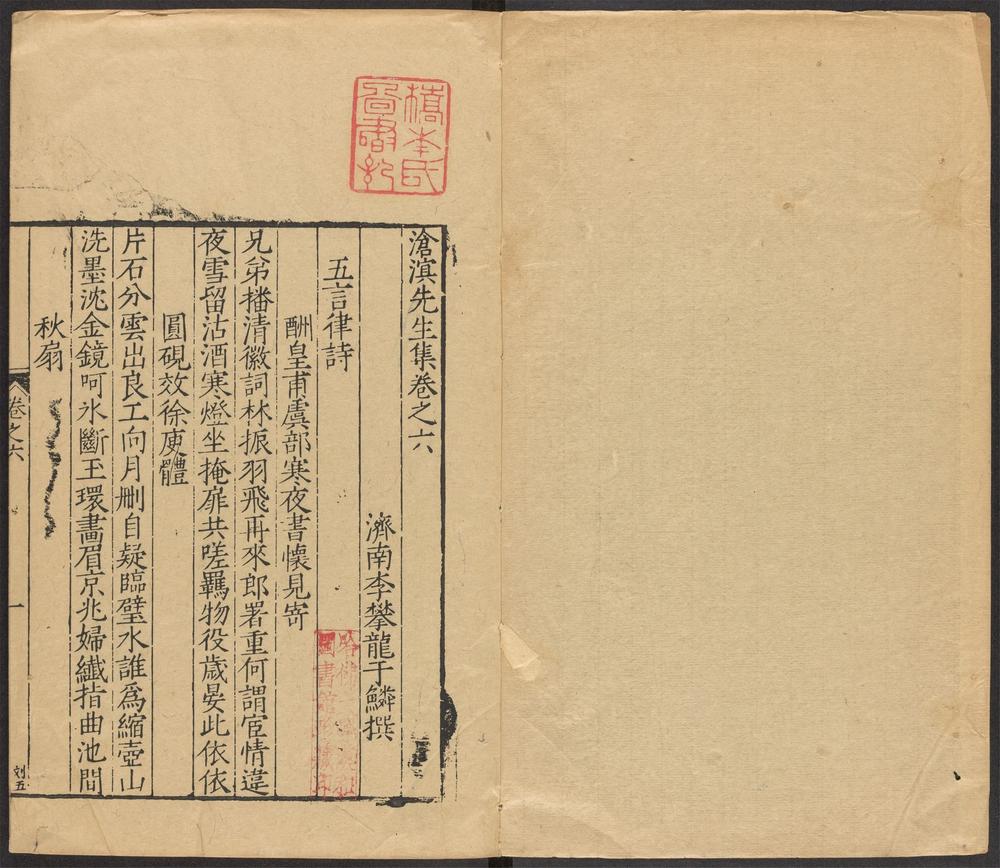 滄溟先生集卷之六
濟南李攀龍于鱗撰
五言律詩
酬皇甫虞部寒夜書懷見寄
兄弟播清徽詞林振羽飛再來郎署重何謂宦情違
夜雪留沽酒寒燈坐掩扉共嗟羈物役歲晏此依依
圓硯效徐庾體
片石分雲出良工向月刪自疑臨璧水誰爲縮壺山
洗墨沈金鏡呵氷斷玉環畵眉京兆婦纎指曲池間
秋扇
卷之六
一
刘五
橋本氏
啚書記
哈佛
圖書館